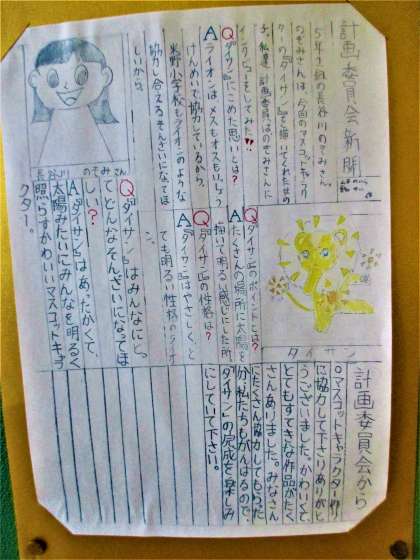 計画委員会新聞
5年1組の長谷川のぞみさん。
のぞみさんは、今回のマスコットキャラク
ターの「ダイサン」を描いてくれた女の
子。私達、計画委員はのぞみさんに
インタビューをしてみた!!
Q「ダイサン」にこめた思いとは?
Aライオンはメスもオスもいっしょう
けんめいで協力しているから、
米野小学校もライオンのような
協力し合えるそんざいになってほ
しいから。
長谷川のぞみさん
Q「ダイサン」のポイントとは?
Aたくさんの場所に太陽を
描いて明るい感じにした所
Q「ダイサン」の性格は?
A「ダイサン」はやさしく、と
ても明るい性格のライオ
ン
Q「ダイサン」はみんなにとっ
てどんなそんざいになってほ
しい?
A「ダイサン」はあったかくて、
太陽みたいにみんなを明るく
照らすかわいいマスコットキャラ
クター。
ダイサン
計画委員会から
マスコットキャラクター作り
に協力して下さりありがと
うございました。かわいくて、
とてもすてきな作品がたく
さんありました。みなさん
にたくさん協力してもらった
分、私たちもがんばるので、
ダイサンの完成を楽しみ
にしていて下さい。